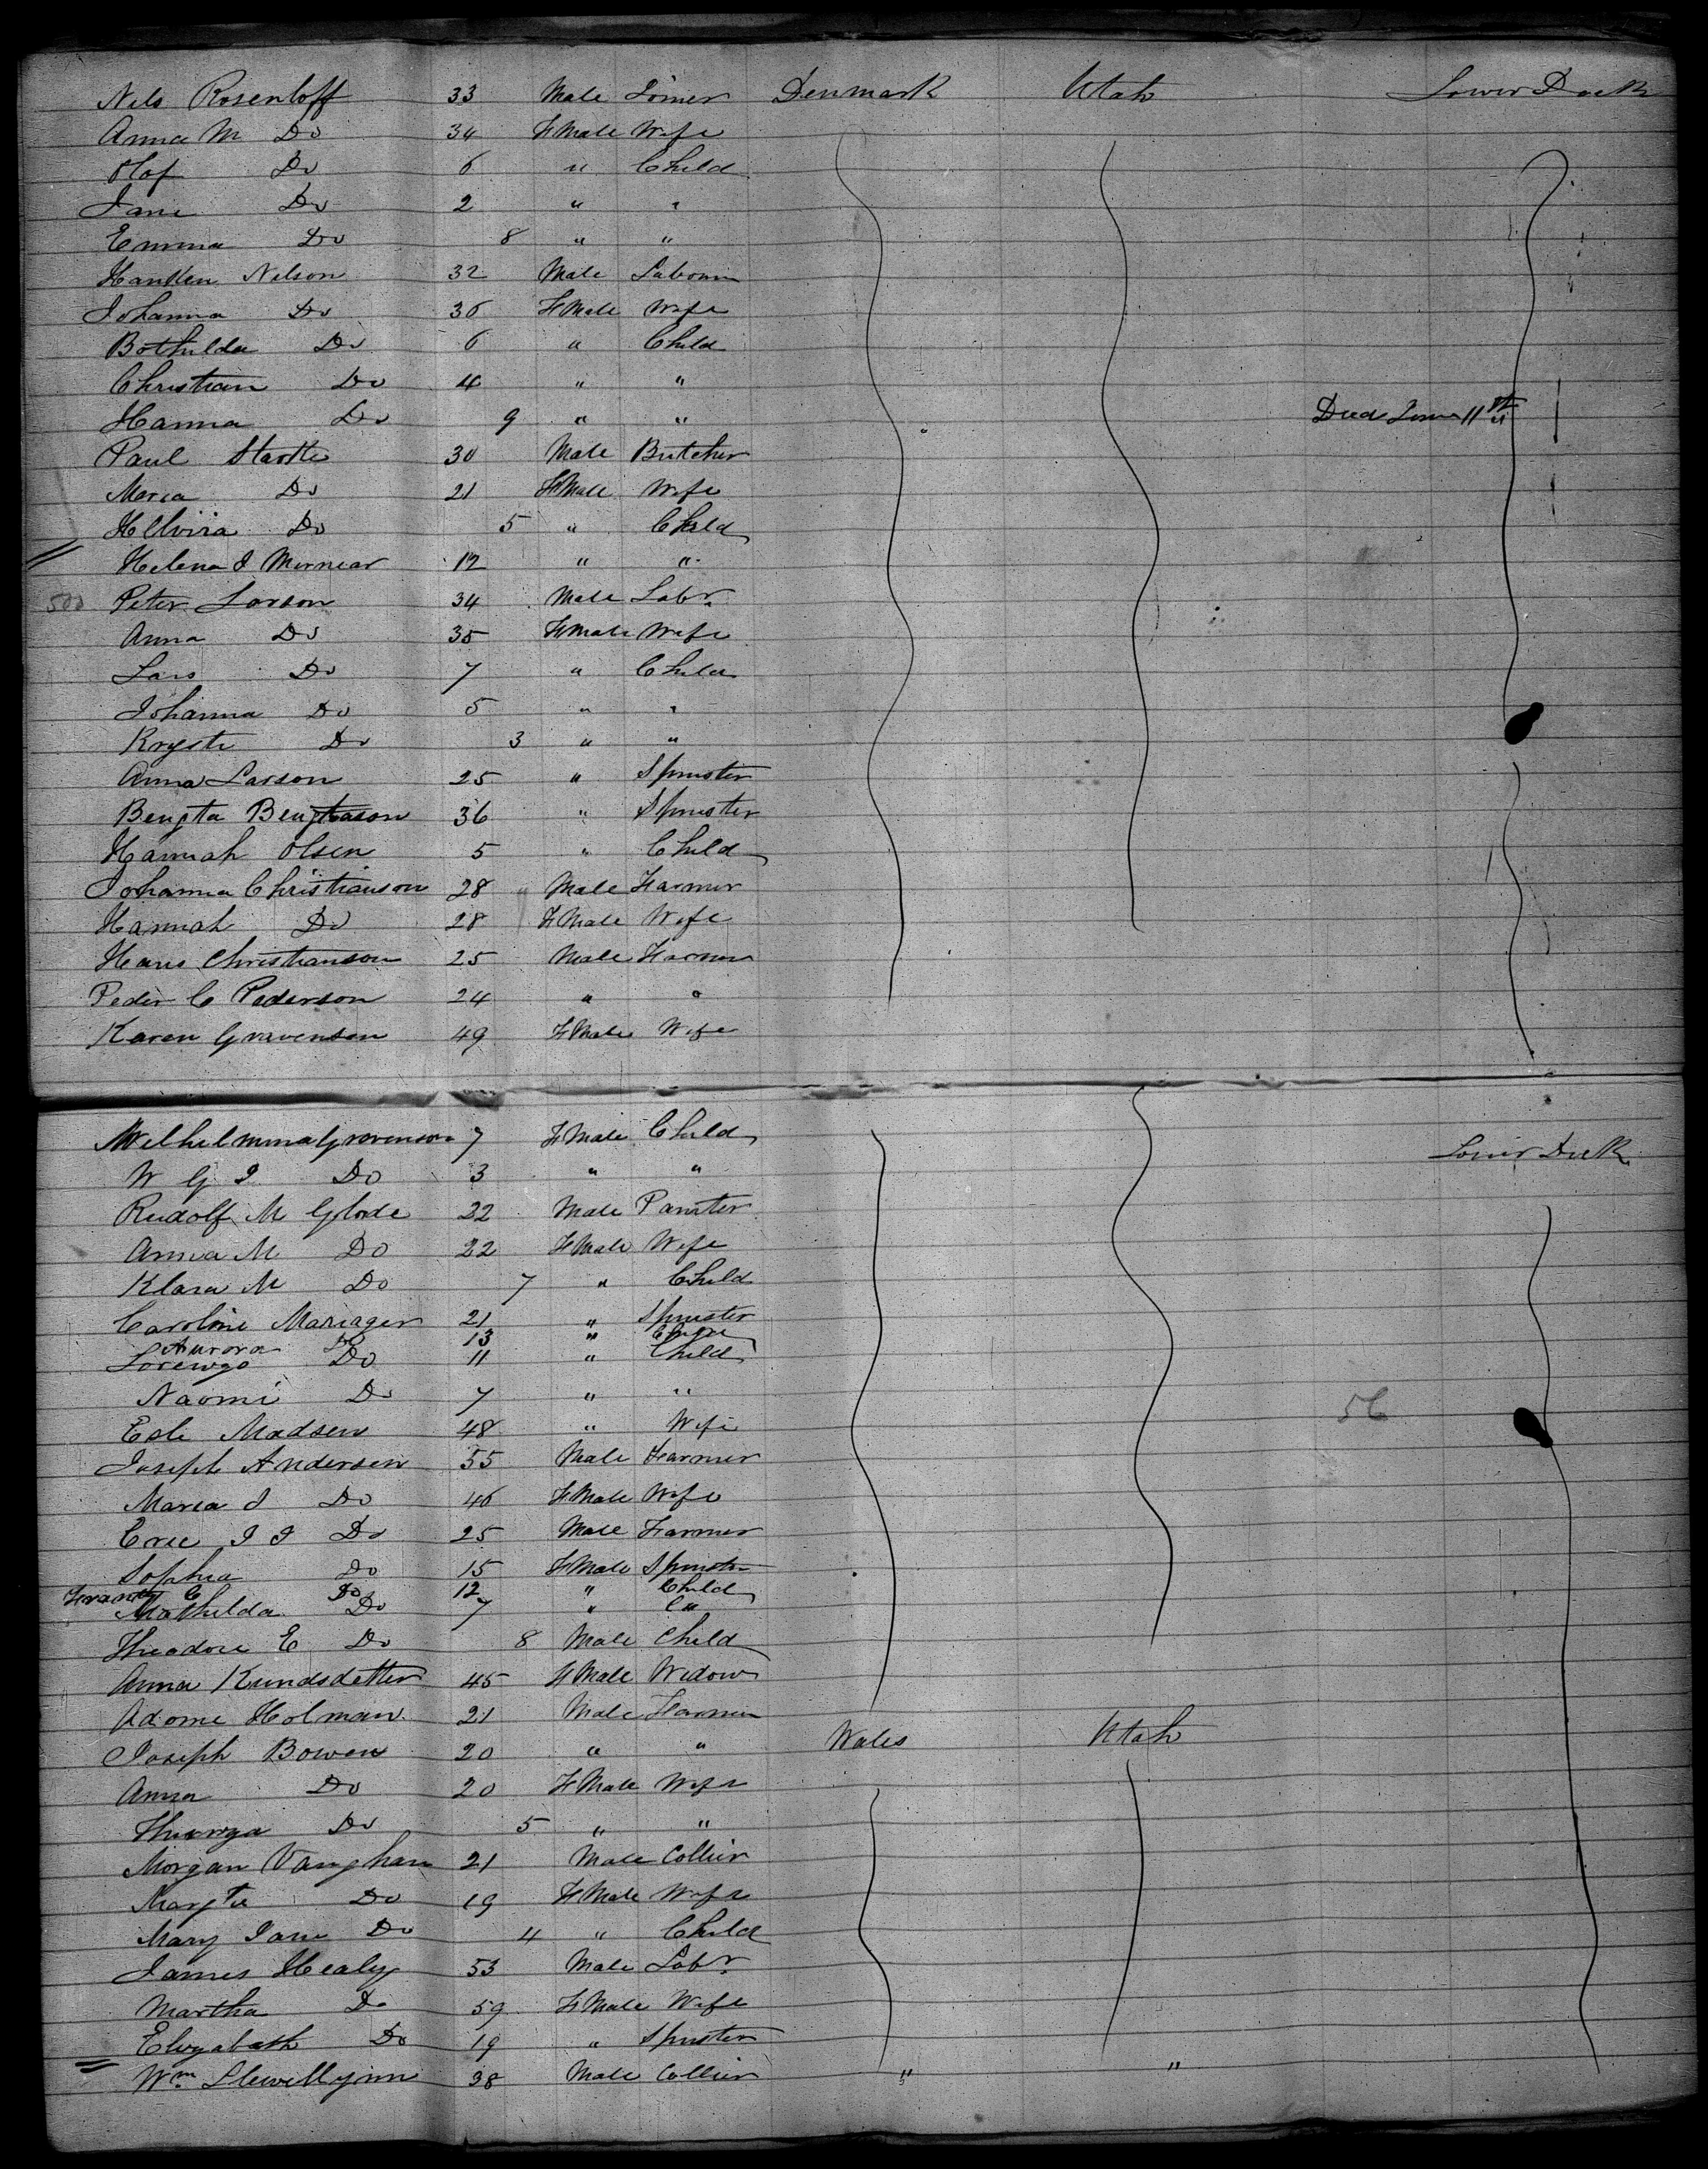 Nils Rosenloff 33 Male Joiner Denmark Utah Lower Deck
Anna M Do 34 FMale Wife
Olof Do 6 " Child
Jane Do 2 " "
Emma Do 8 " "
Hanken Nelson 32 Male Labourer
Johanna Do 36 FMale Wife
Bothilda Do 6 " Child
Christian Do 4 " "
Hanna Do 9 " " Died June 11th
Paul 30 Male Butcher
Maria Do 21 FMale Wife
Hellvira Do 5 " Child
Helena J 12 " "
500 Peter Larson 34 Male Labr
Anna Do 35 FMale Wife
Lars Do 7 " Child
Johanna Do 5 " "
Do 3 " "
Anna Larson 25 " Spinster
Bengta Bengtason 36 " Spinster
Hannah Olsen 5 " Child
Johanna Christianson 28 " Male Farmer
Hannah Do 28 FMale Wife
Hans Christianson 25 Male Farmer
Peder C Pederson 24 " "
Karen Gravenson 49 FMale Wife
Welhelmina Gravenson 7 FMale Child Lower Deck
W G J Do 3 " "
Rudolf M Glode 22 Male Painter
Anna M Do 22 FMale Wife
Klara M Do 7 " Child
Caroline Mariager 21 " Spinster
Aurora Do 13 " Child
Lorewgo Do 11 " Child
Naomi Do 7 " "
Madsen 48 " Wife 56
Joseph Andersen 55 Male Farmer
Maria J Do 46 FMale Wife
Eric J J Do 25 Male Farmer
Sophia Do 15 FMale Spinster
C Do 12 " Child
Mathilda Do 7 " "
Theodore E Do 8 Male Child
Anna Kundsdetter 45 FMale Widow
Adome Holman 21 Male Farmer
Joseph Bowen 20 " " Wales Utah
Anna Do 20 FMale Wife
Do 5 " "
Morgan Vaughan 21 Male Collier
Margta Do 19 FMale Wife
Mary Jane Do 4 " Child
James Healy 53 Male Labr
Martha Do 59 FMale Wife
Elizabeth Do 19 " Spinster
Wm Llewellynn 38 Male Collier " "